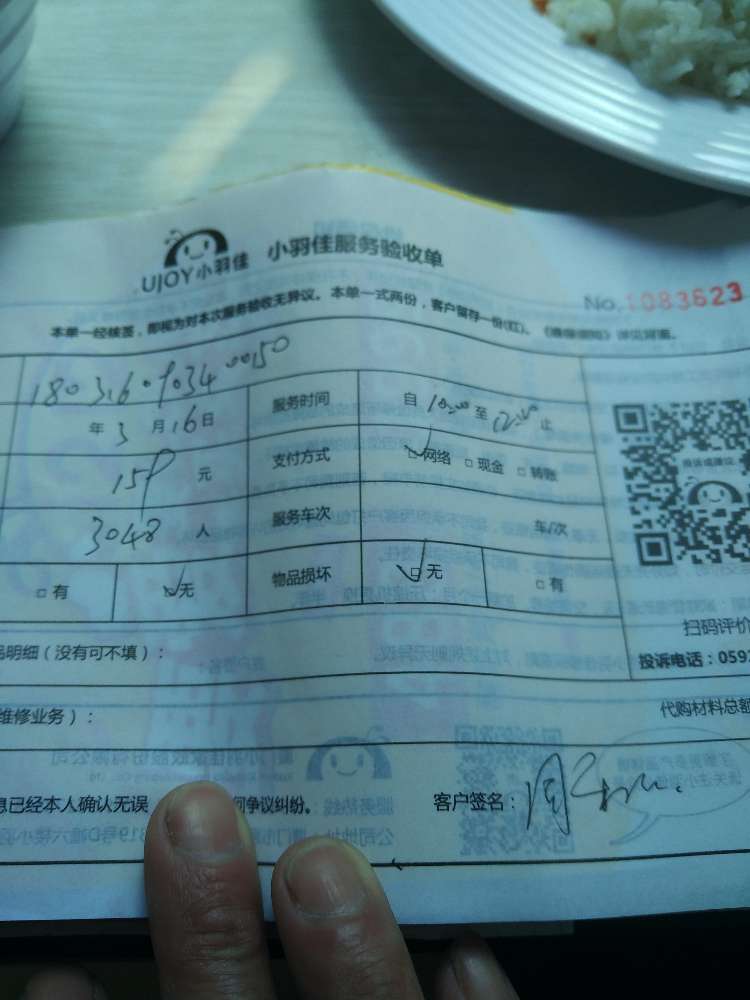 UJOY小羽佳 小羽佳服务验收单
No.1083623
本单一经核签，即视为对本次服务验收无异议。本单一式两份，客户留存一份(红)。
1803160903400150
年3月16日 服务时间 自10:00至12:00止
159元 支付方式 网络 现金 转账
3048人 服务车次 车/次
有 无 物品损坏 无 有
扫码评价
品明细（没有可不填）： 投诉电话：059
维修业务）： 代购材料总额
息已经本人确认无误 何争议纠纷。 客户签名：